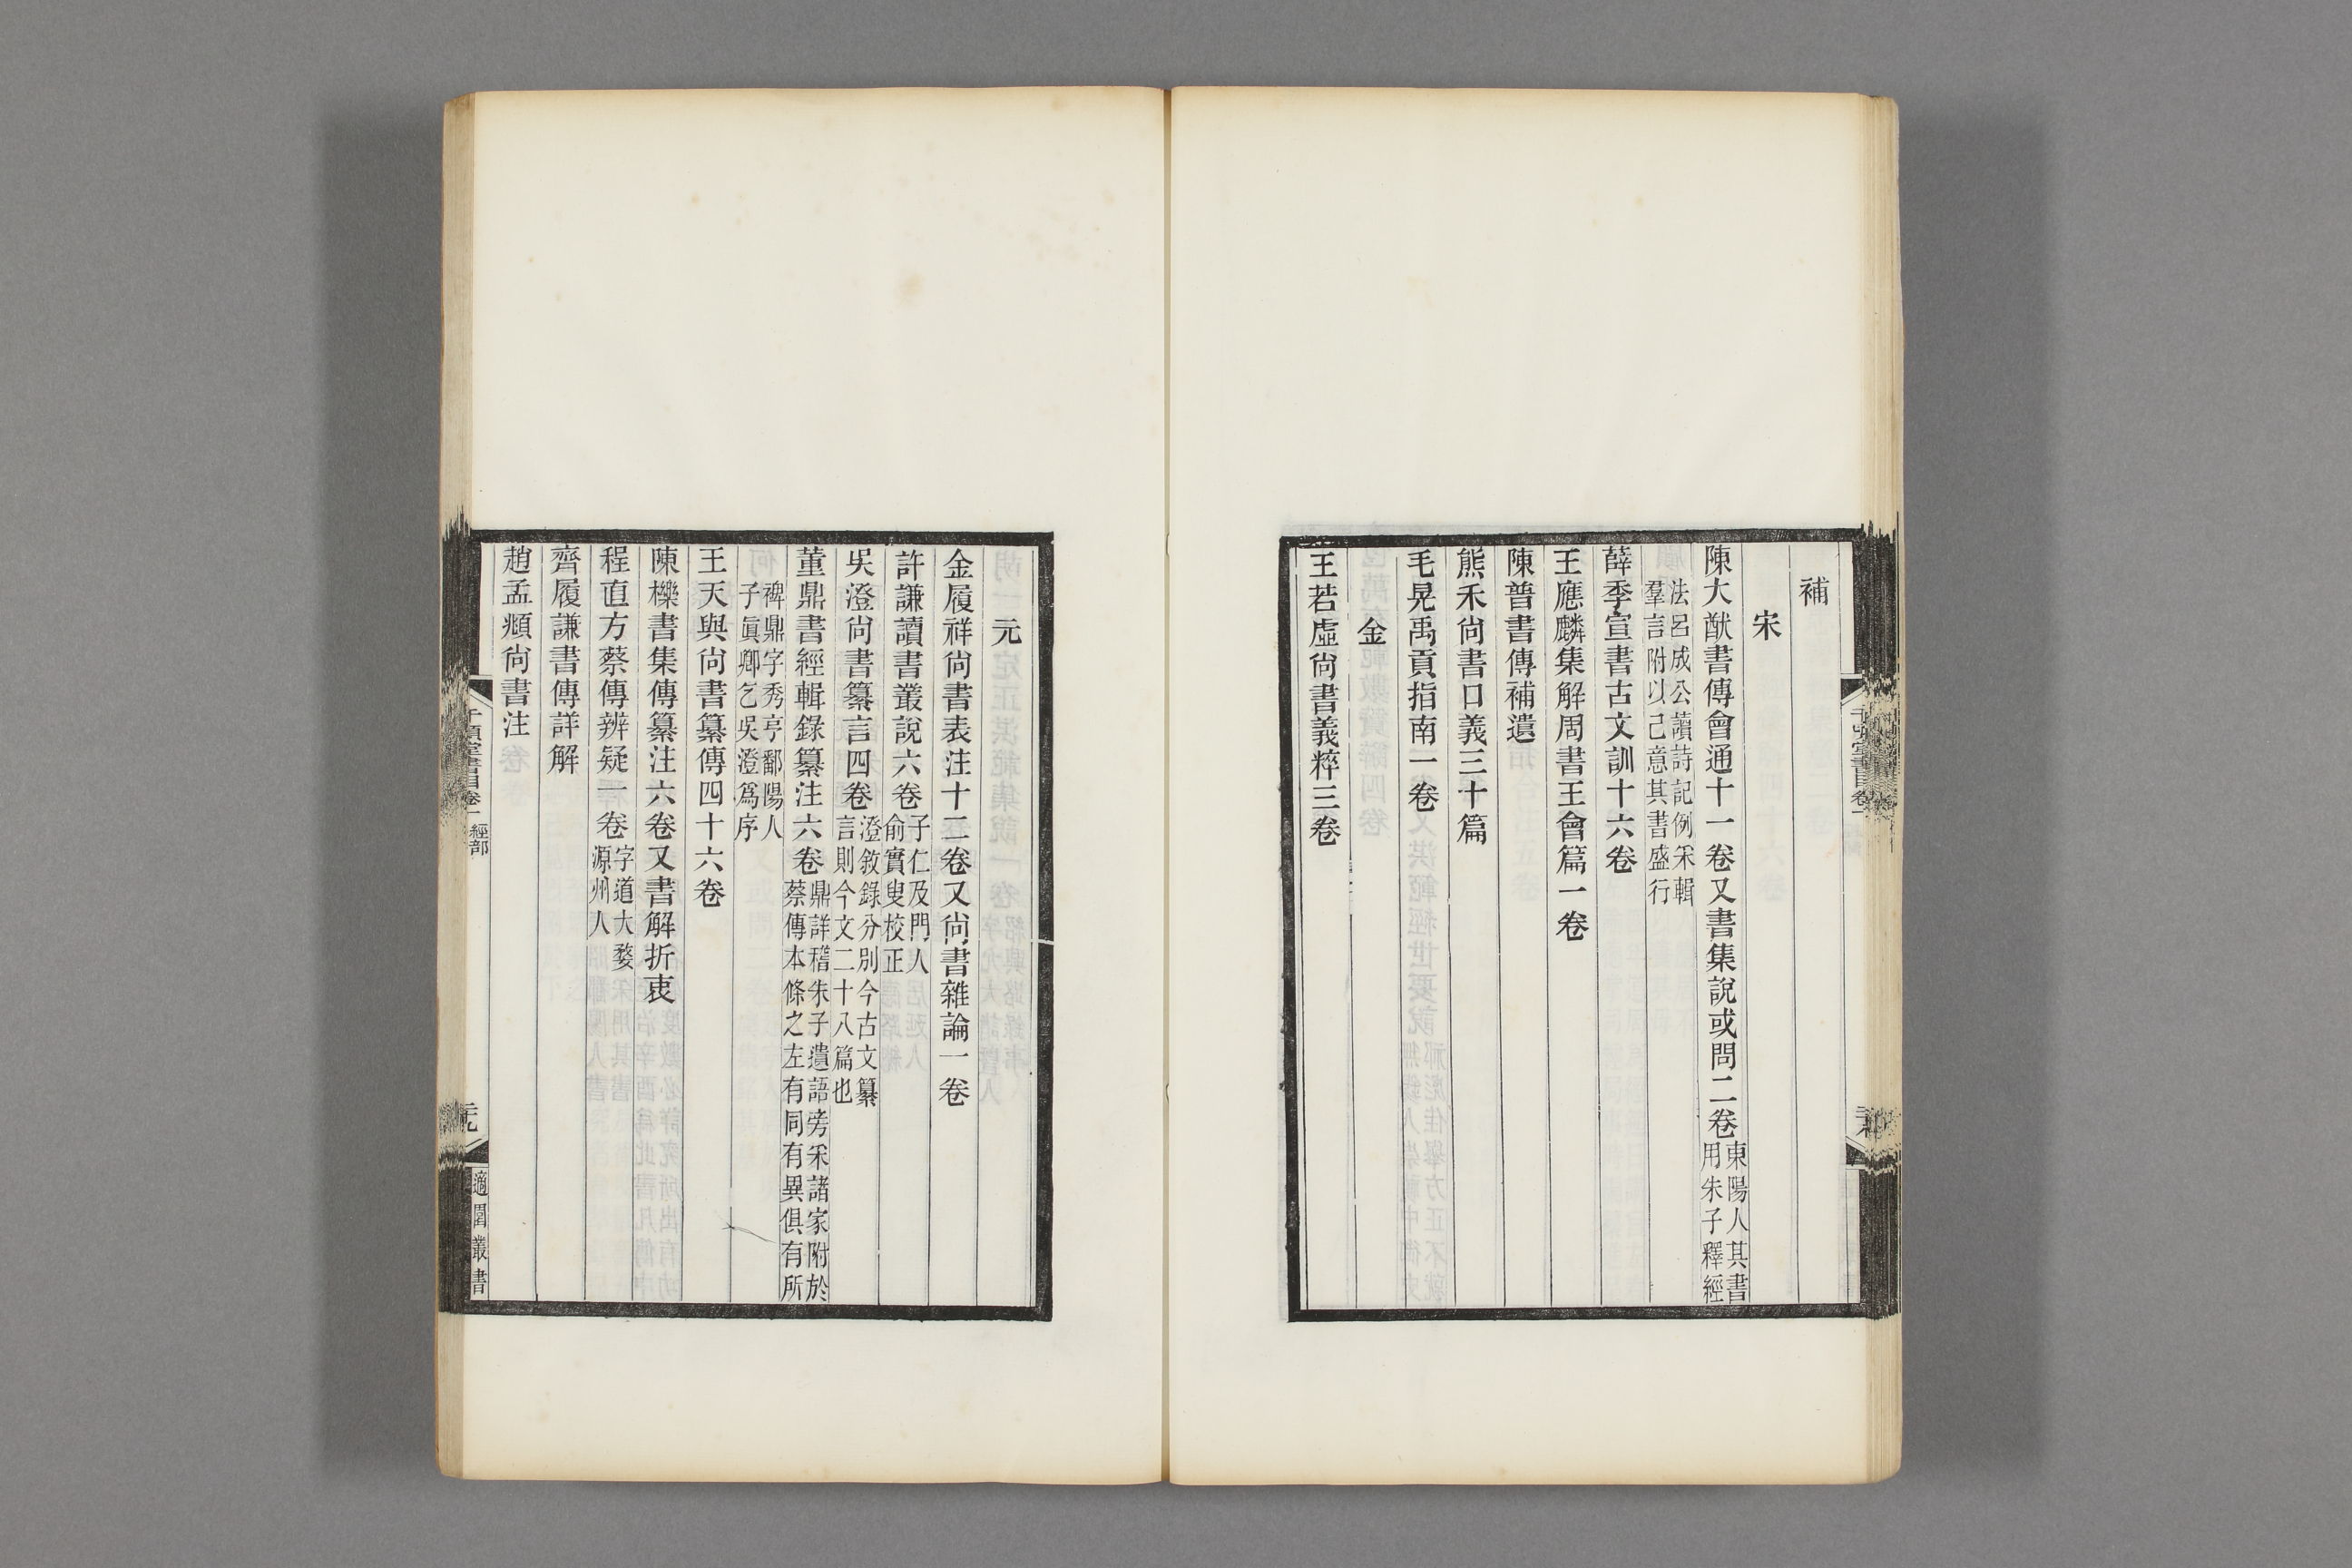 補
宋
陳大猷書傳會通十一卷又書集說或問二卷東陽人其書用朱子釋經
法呂成公讀詩記例采輯羣言附以己意其書盛行
薛季宣書古文訓十六卷
王應麟集解周書王會篇一卷
陳普書傳補遺
熊禾尚書口義三十篇
毛晃禹貢指南一卷
金
王若虛尚書義粹三卷
元
金履祥尚書表注十二卷又尚書雜論一卷
許謙讀書叢說六卷子仁及門人俞實叟校正
吳澄尚書纂言四卷澄敘錄分別今古文纂言則今文二十八篇也
董鼎書經輯錄纂注六卷鼎詳稽朱子遺語旁采諸家附於蔡傳本條之左有同有異俱有所
裨鼎字秀亨鄱陽人子眞卿乞吳澄爲序
王天與尚書纂傳四十六卷
陳櫟書集傳纂注六卷又書解折衷
程直方蔡傳辨疑一卷字道大婺源州人
齊履謙書傳詳解
趙孟頫尚書注
千頃堂書目卷一 經部
適園叢書